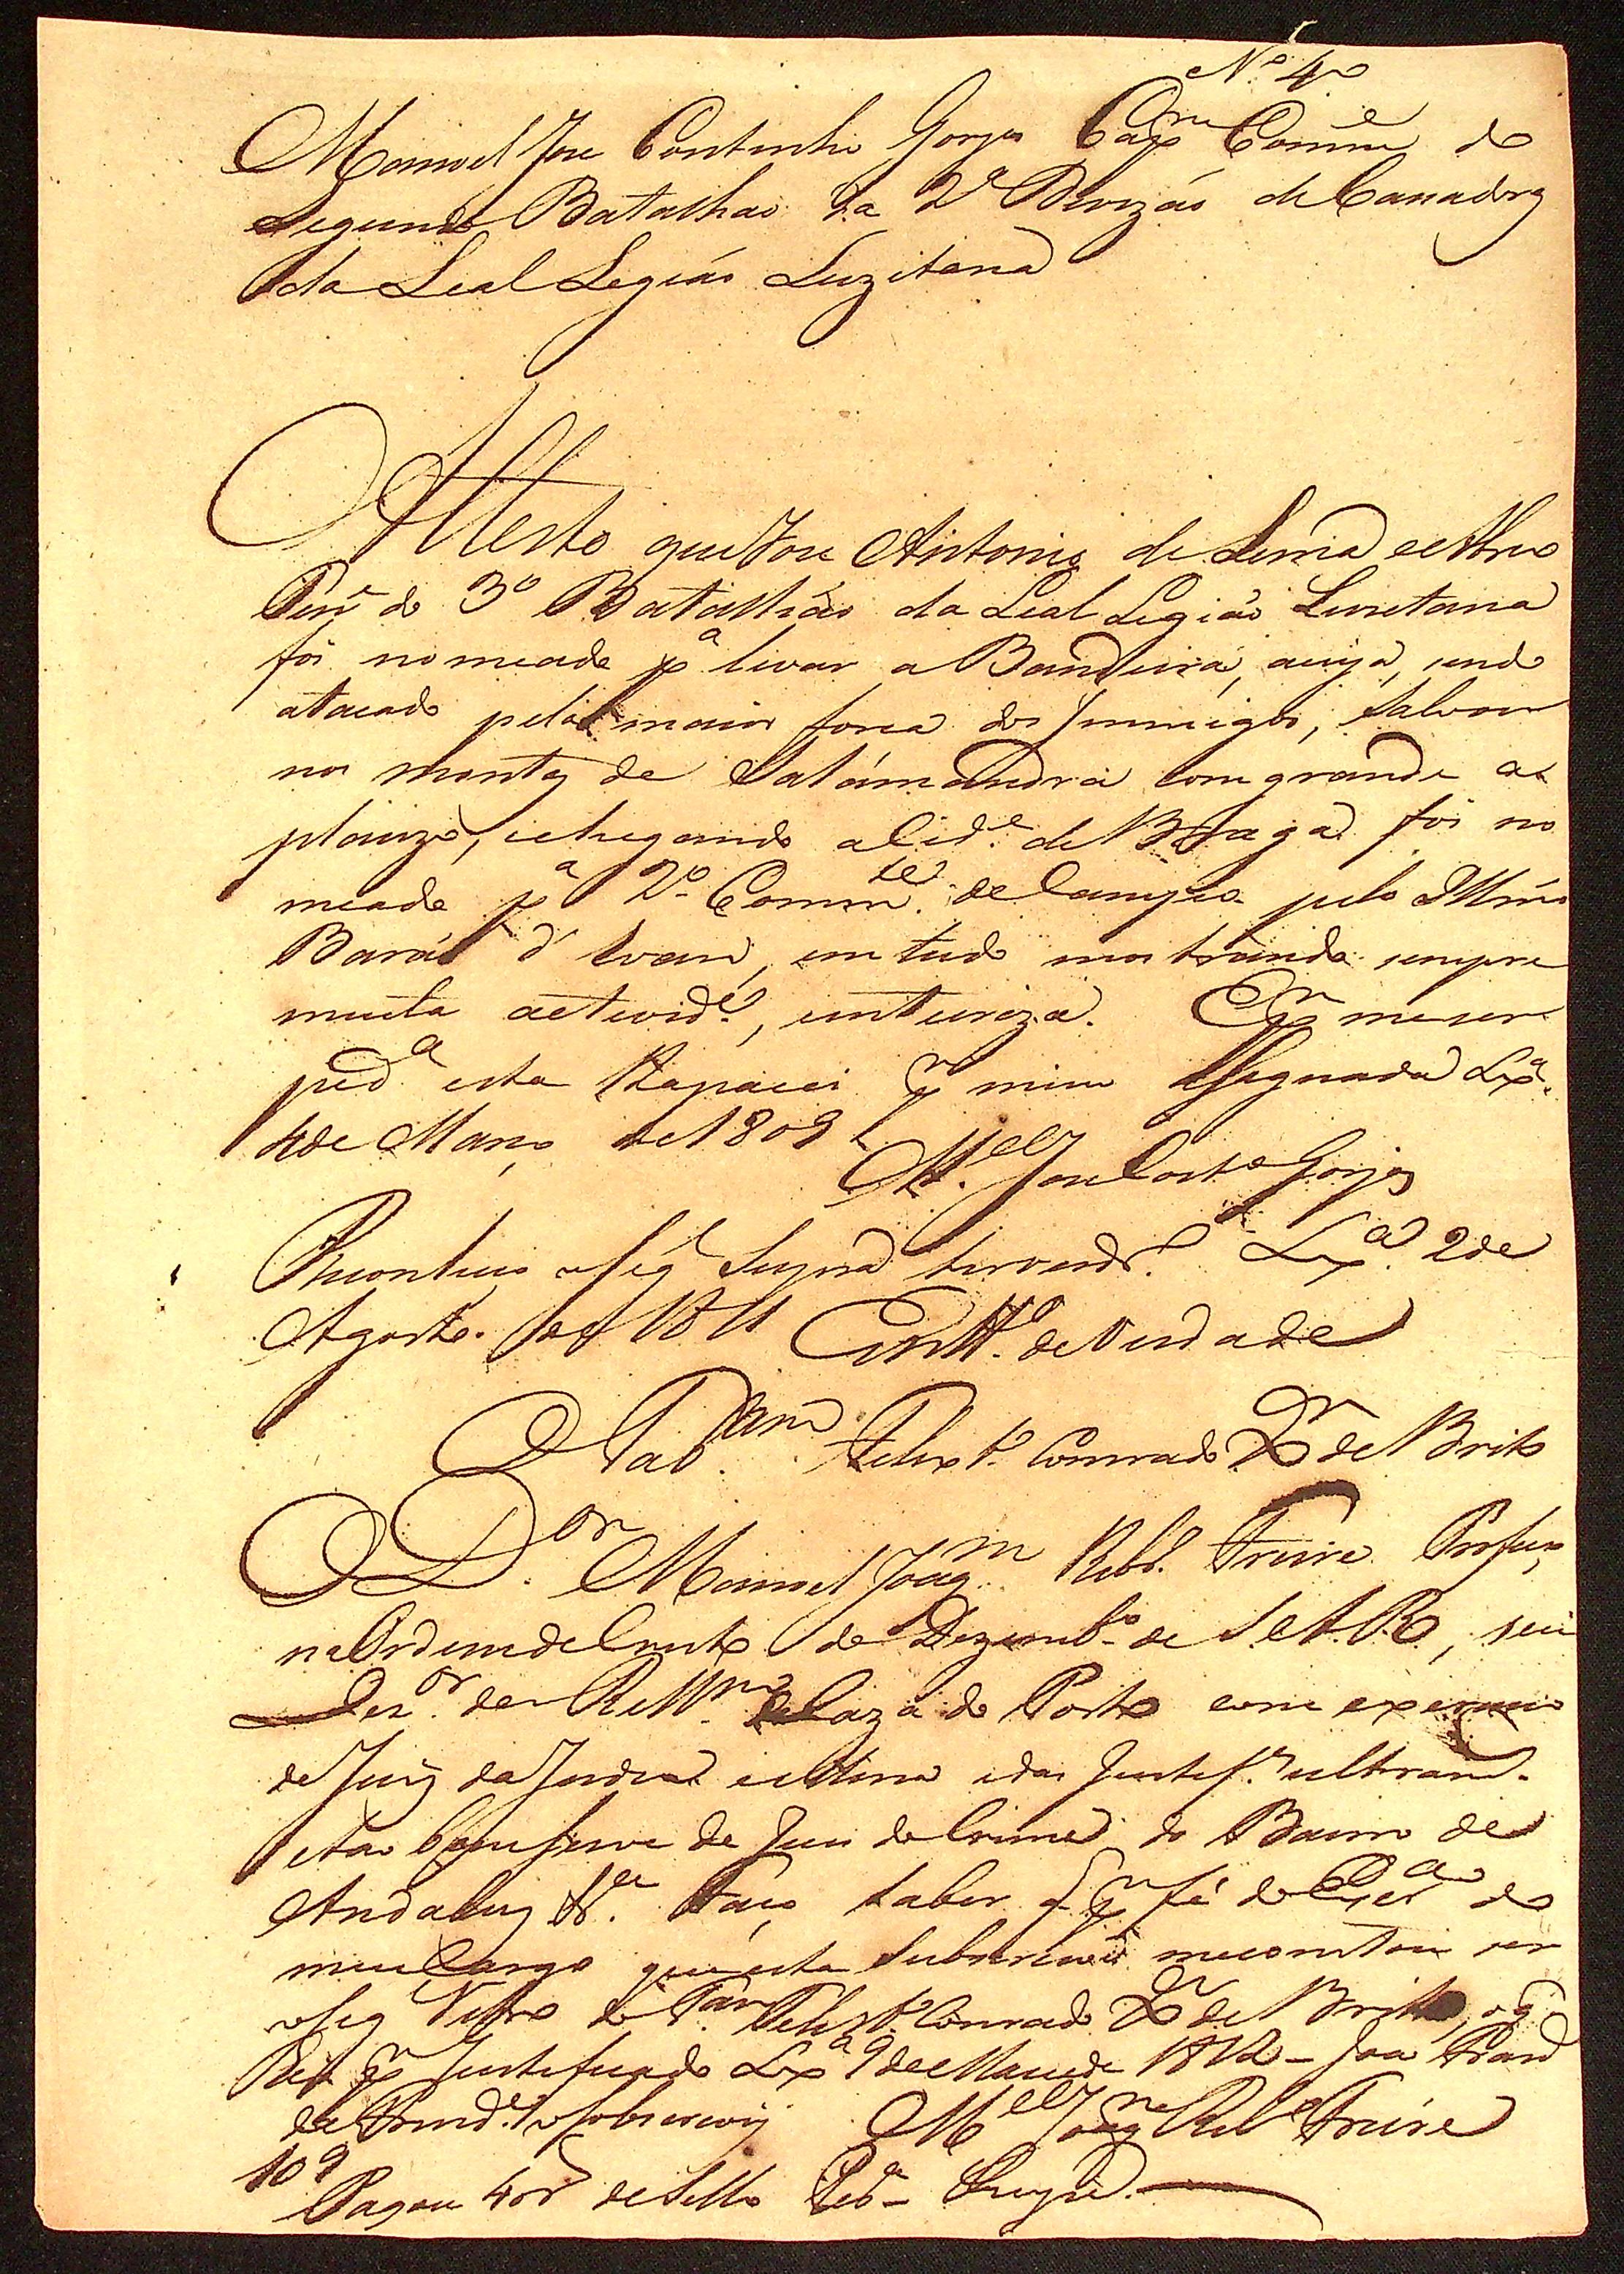 Nº 4
Manoel Joze Coutinho Gorjaõ Cap.m Comm.e do
Segundo Batalhaõ da 2ª Divizaõ de Cassadores
da Leal Legiaõ Luzitana
Attesto que Joze Antonio de Lima e Abreo
do 3º Batalhaõ da Leal Legiaõ Luzitana
foi nomeado p.ª livar a Bandeira, cuja, sendo
atacado pela maior forca dos Inimigos, Salvou
nos montes de com grande a
plauzo, e chegando a Cid.e de Braga foi no
meado p.ª 2º Comm.te de Campo pelo Illmo
Baraõ d' Eben, em tudo mostrando sempre
muita activid.e, e inteireza. E p.r me ser
pedª esta a passei p.r mim assignada Lxª.
4 de Março de 1809
M.el Joze Cout.o Gorjaõ
Reconheço o sig.l Supra verd.o Lxª 2 de
Agosto de 1811 Em tt.o de Verdade
O Tab.am Felix Conrado de Brito
O D.or Manoel Joaq.m Reb.o Freire Profeso
na Ordem de Cristo do Dezemb.o de S.A.R., seu
Dez.or da Rell.m e Caza do Porto com exercicio
de Juiz da India e Mina e das Justif.es ultram.
etas que serve de Juiz do Crime do Bairro de
Andaluz &.ª Faço saber q. p.r fé do Es.am do
meu Cargo que esta Subscreveu me constou ser
o sig Retro do T.am Felix Conrado de Brito, o q.
Hei p.r Justificado Lxª 9 de Março de 1812 - Joaõ
de o sobscrevy M.el Joaq.m Reb.o Freire
109
Pagou 40 r de Sello